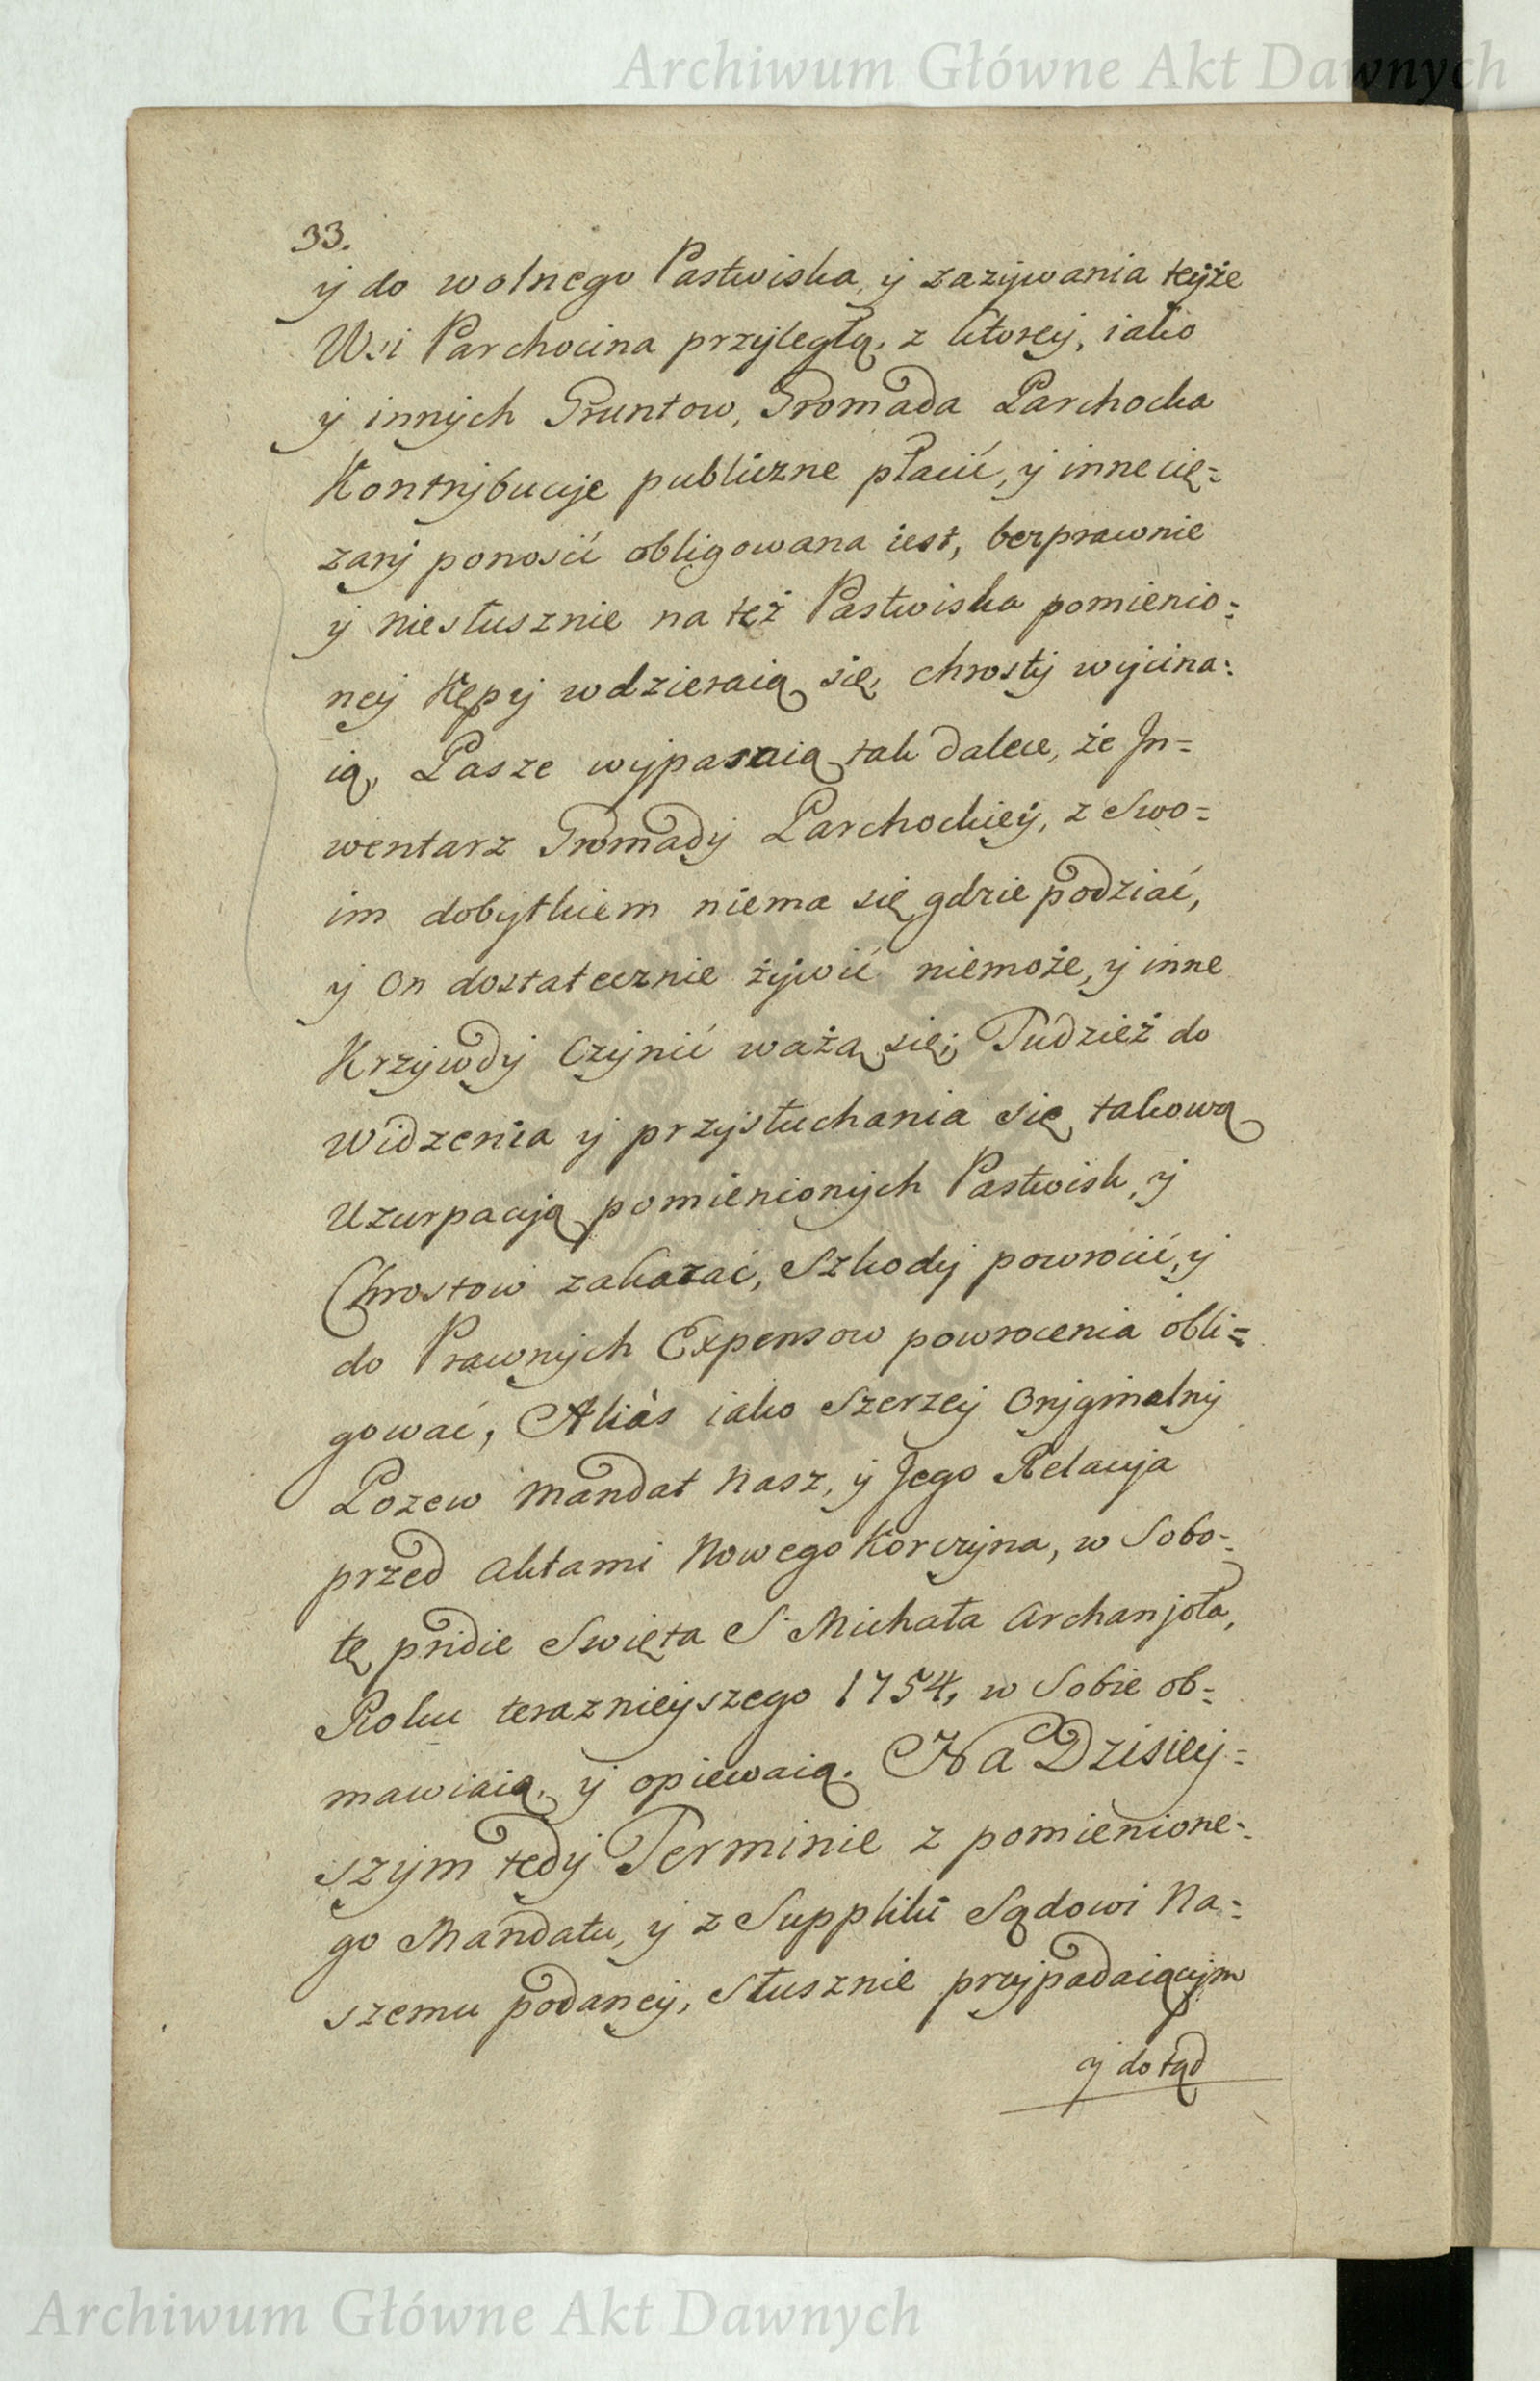 Archiwum Główne Akt Dawnych
33.
y do wolnego Pastwiska, y zazywania teyże
Wsi Parchocina przyległą, z ktorey, iako
y innych Gruntow, Gromada Parchocka
Kontrybucyje publiczne płacić, y inne cię=
zary ponosić obligowana iest, bezprawnie
y niesłusznie na też Pastwiska pomienio=
ney Kępy wdzieraią się, chrosty wycina=
ią, Pasze wypasaią tak dalece, że In=
wentarz Gromady Parchockiey, z Swo=
im dobytkiem niema się gdzie podziać,
y On dostatecznie żywić niemoże, y inne
Krzywdy Czynić ważą się; Tudzież do
Widzenia y przysłuchania się takową
Uzurpacyją pomienionych Pastwisk, y
Chrostow zakazać, Szkody powrocić, y
do Prawnych Expensow powrocenia obli=
gować, Aliàs iako Szerzey Oryginalny
Pozew Mandat Nasz, y Jego Relacyja
przed Aktami Nowego Korczyna, w Sobo=
tę pridie Swięta S. Michała Archanjoła,
Roku terazniejszego 1754, w Sobie ob=
mawiaią, y opiewaią. Na Dzisiey=
szym tedy Terminie z pomienione=
go Mandatu, y z Suppliki Sądowi Na=
szemu podaney, Słusznie przypadaiącym
y dotąd
Archiwum Główne Akt Dawnych